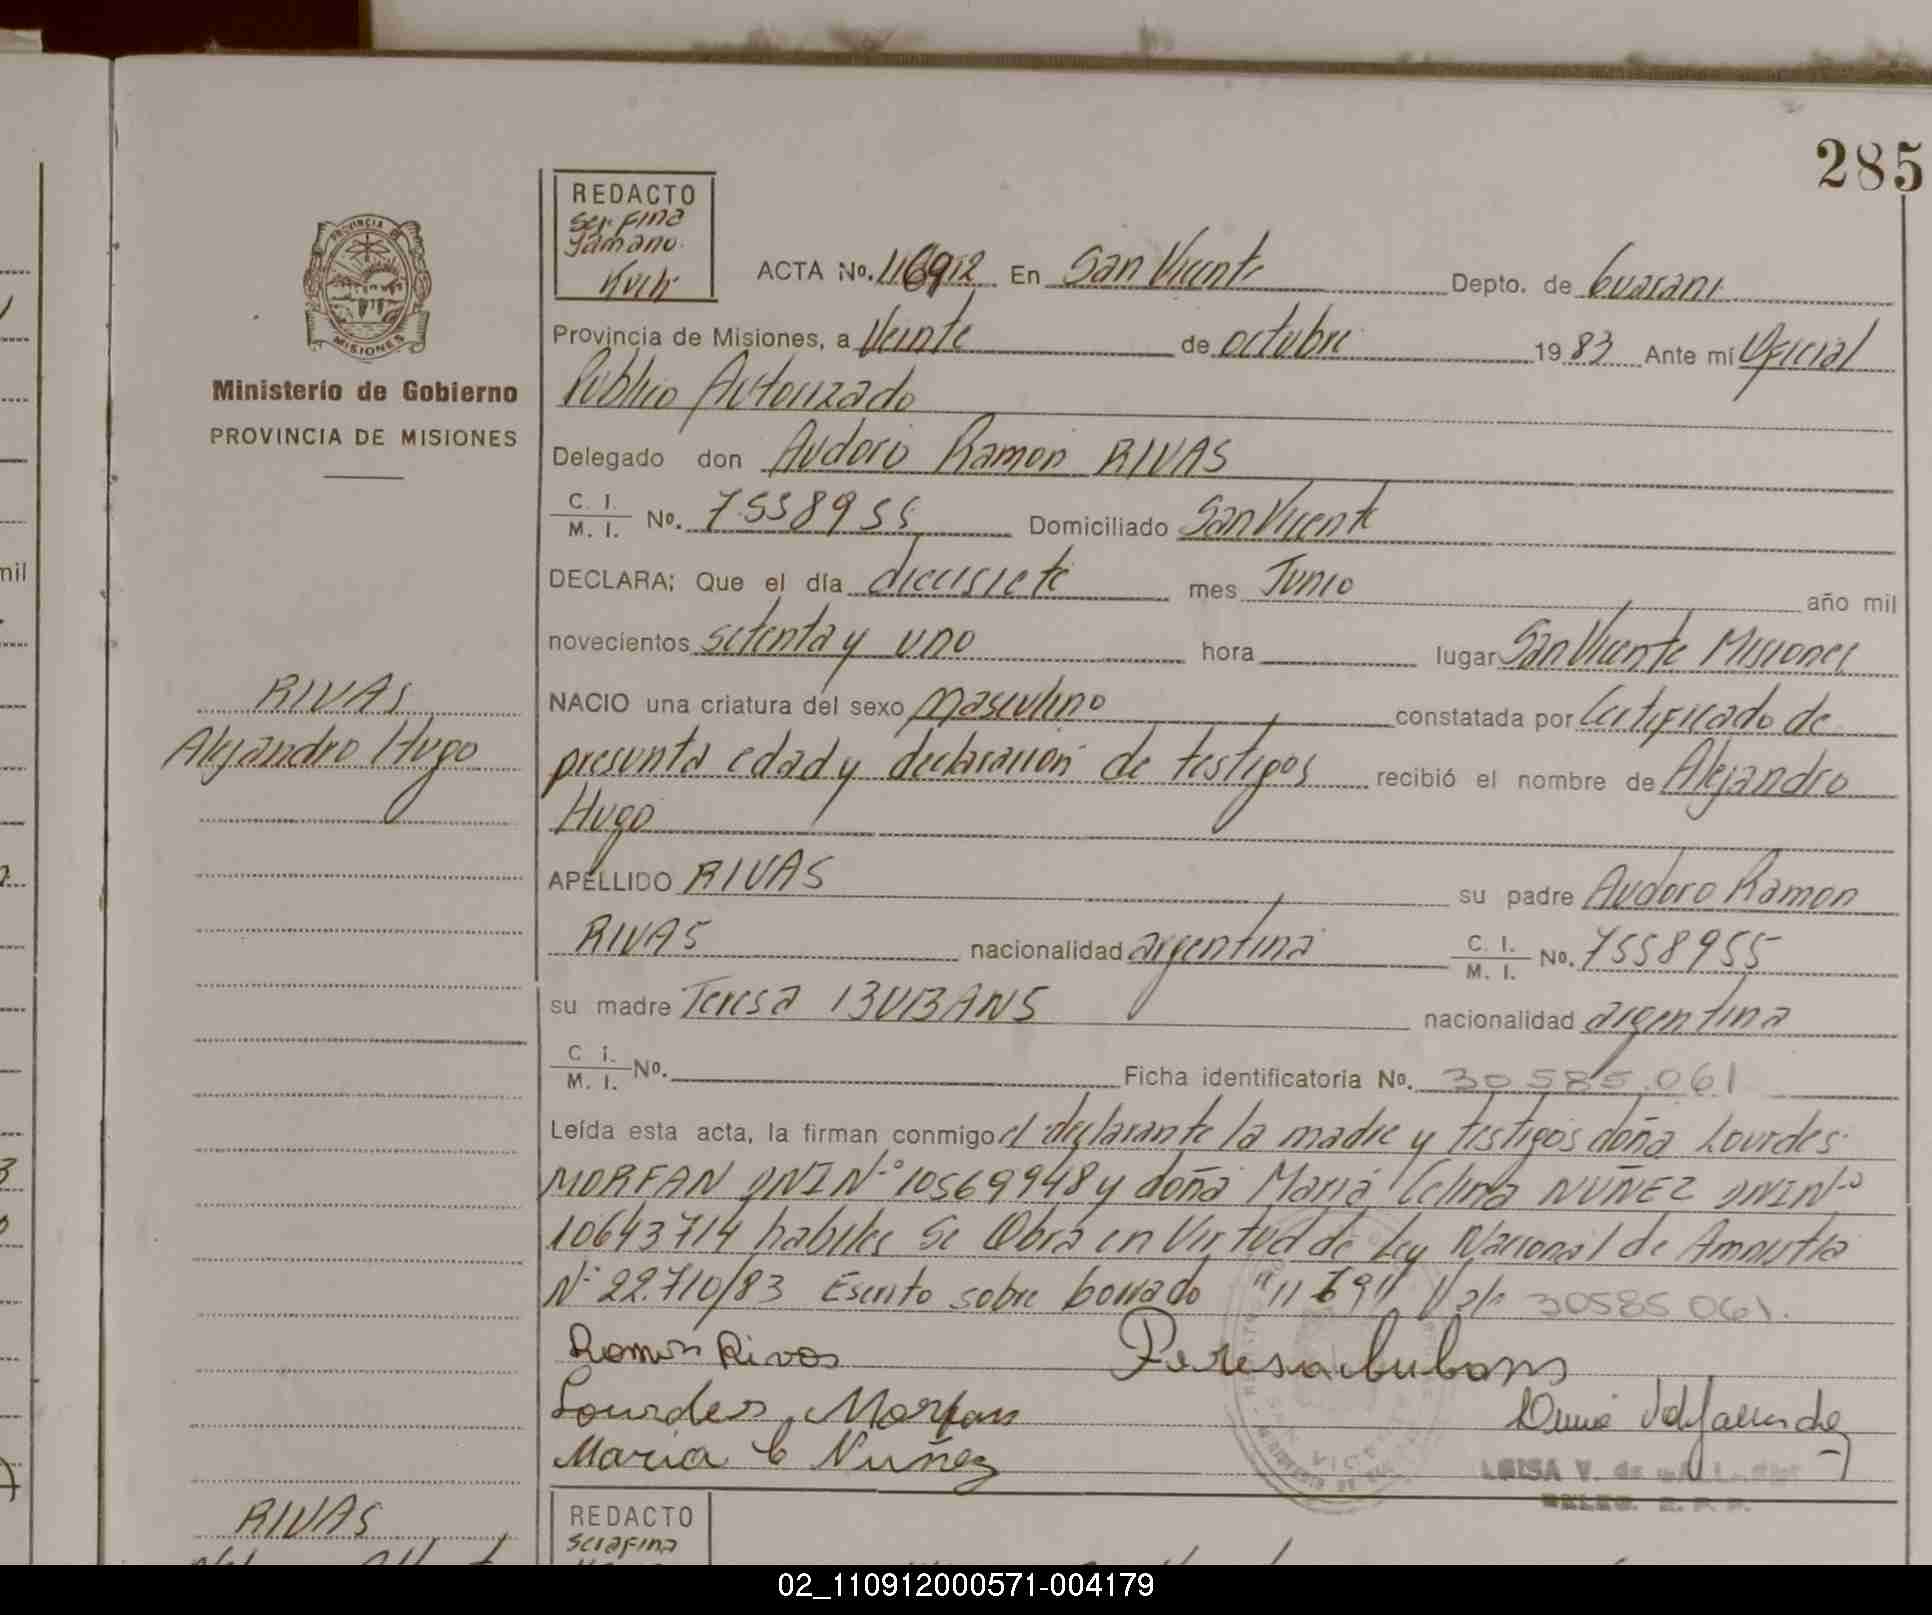 285
REDACTO
Serafina
PROVINCIA DE
MISIONES
Ministerio de Gobierno
PROVINCIA DE MISIONES
ACTA No. En San Vicente Depto. de Guarani
Provincia de Misiones, a Veinte de octubre 1983 Ante mí Oficial
Publico Autorizado
Delegado don Audoro Ramon RIVAS
C. I.
M. I. No. 7558955 Domiciliado San Vicente
DECLARA: Que el día diecisiete mes Junio año mil
novecientos setenta y uno hora lugar San Vicente Misiones
RIVAS
Alejandro Hugo
NACIO una criatura del sexo masculino constatada por Certificado de
presunta edad y declaración de testigos recibió el nombre de Alejandro
Hugo
APELLIDO RIVAS su padre Audoro Ramon
RIVAS nacionalidad argentina C. I.
M. I. No. 7558955
su madre Teresa BUBANS nacionalidad argentina
C i.
M. I. No. Ficha identificatoria No. 30.585.061
Leída esta acta, la firman conmigo el declarante la madre y testigos doña Lourdes
MORFAN DNI Nº 10569948 y doña Maria Celina NUÑEZ DNI Nº
10643714 habiles Se Obra en Virtud de Ley Nacional de Amnistia
Nº 22.710/83 Escrito sobre borrado Vale 30585061.
Ramon Rivas Teresa bubans
Lourdes Morfan
Maria C Nuñez
LUISA V. de
RIVAS
REDACTO
Serafina
mil
02_110912000571-004179